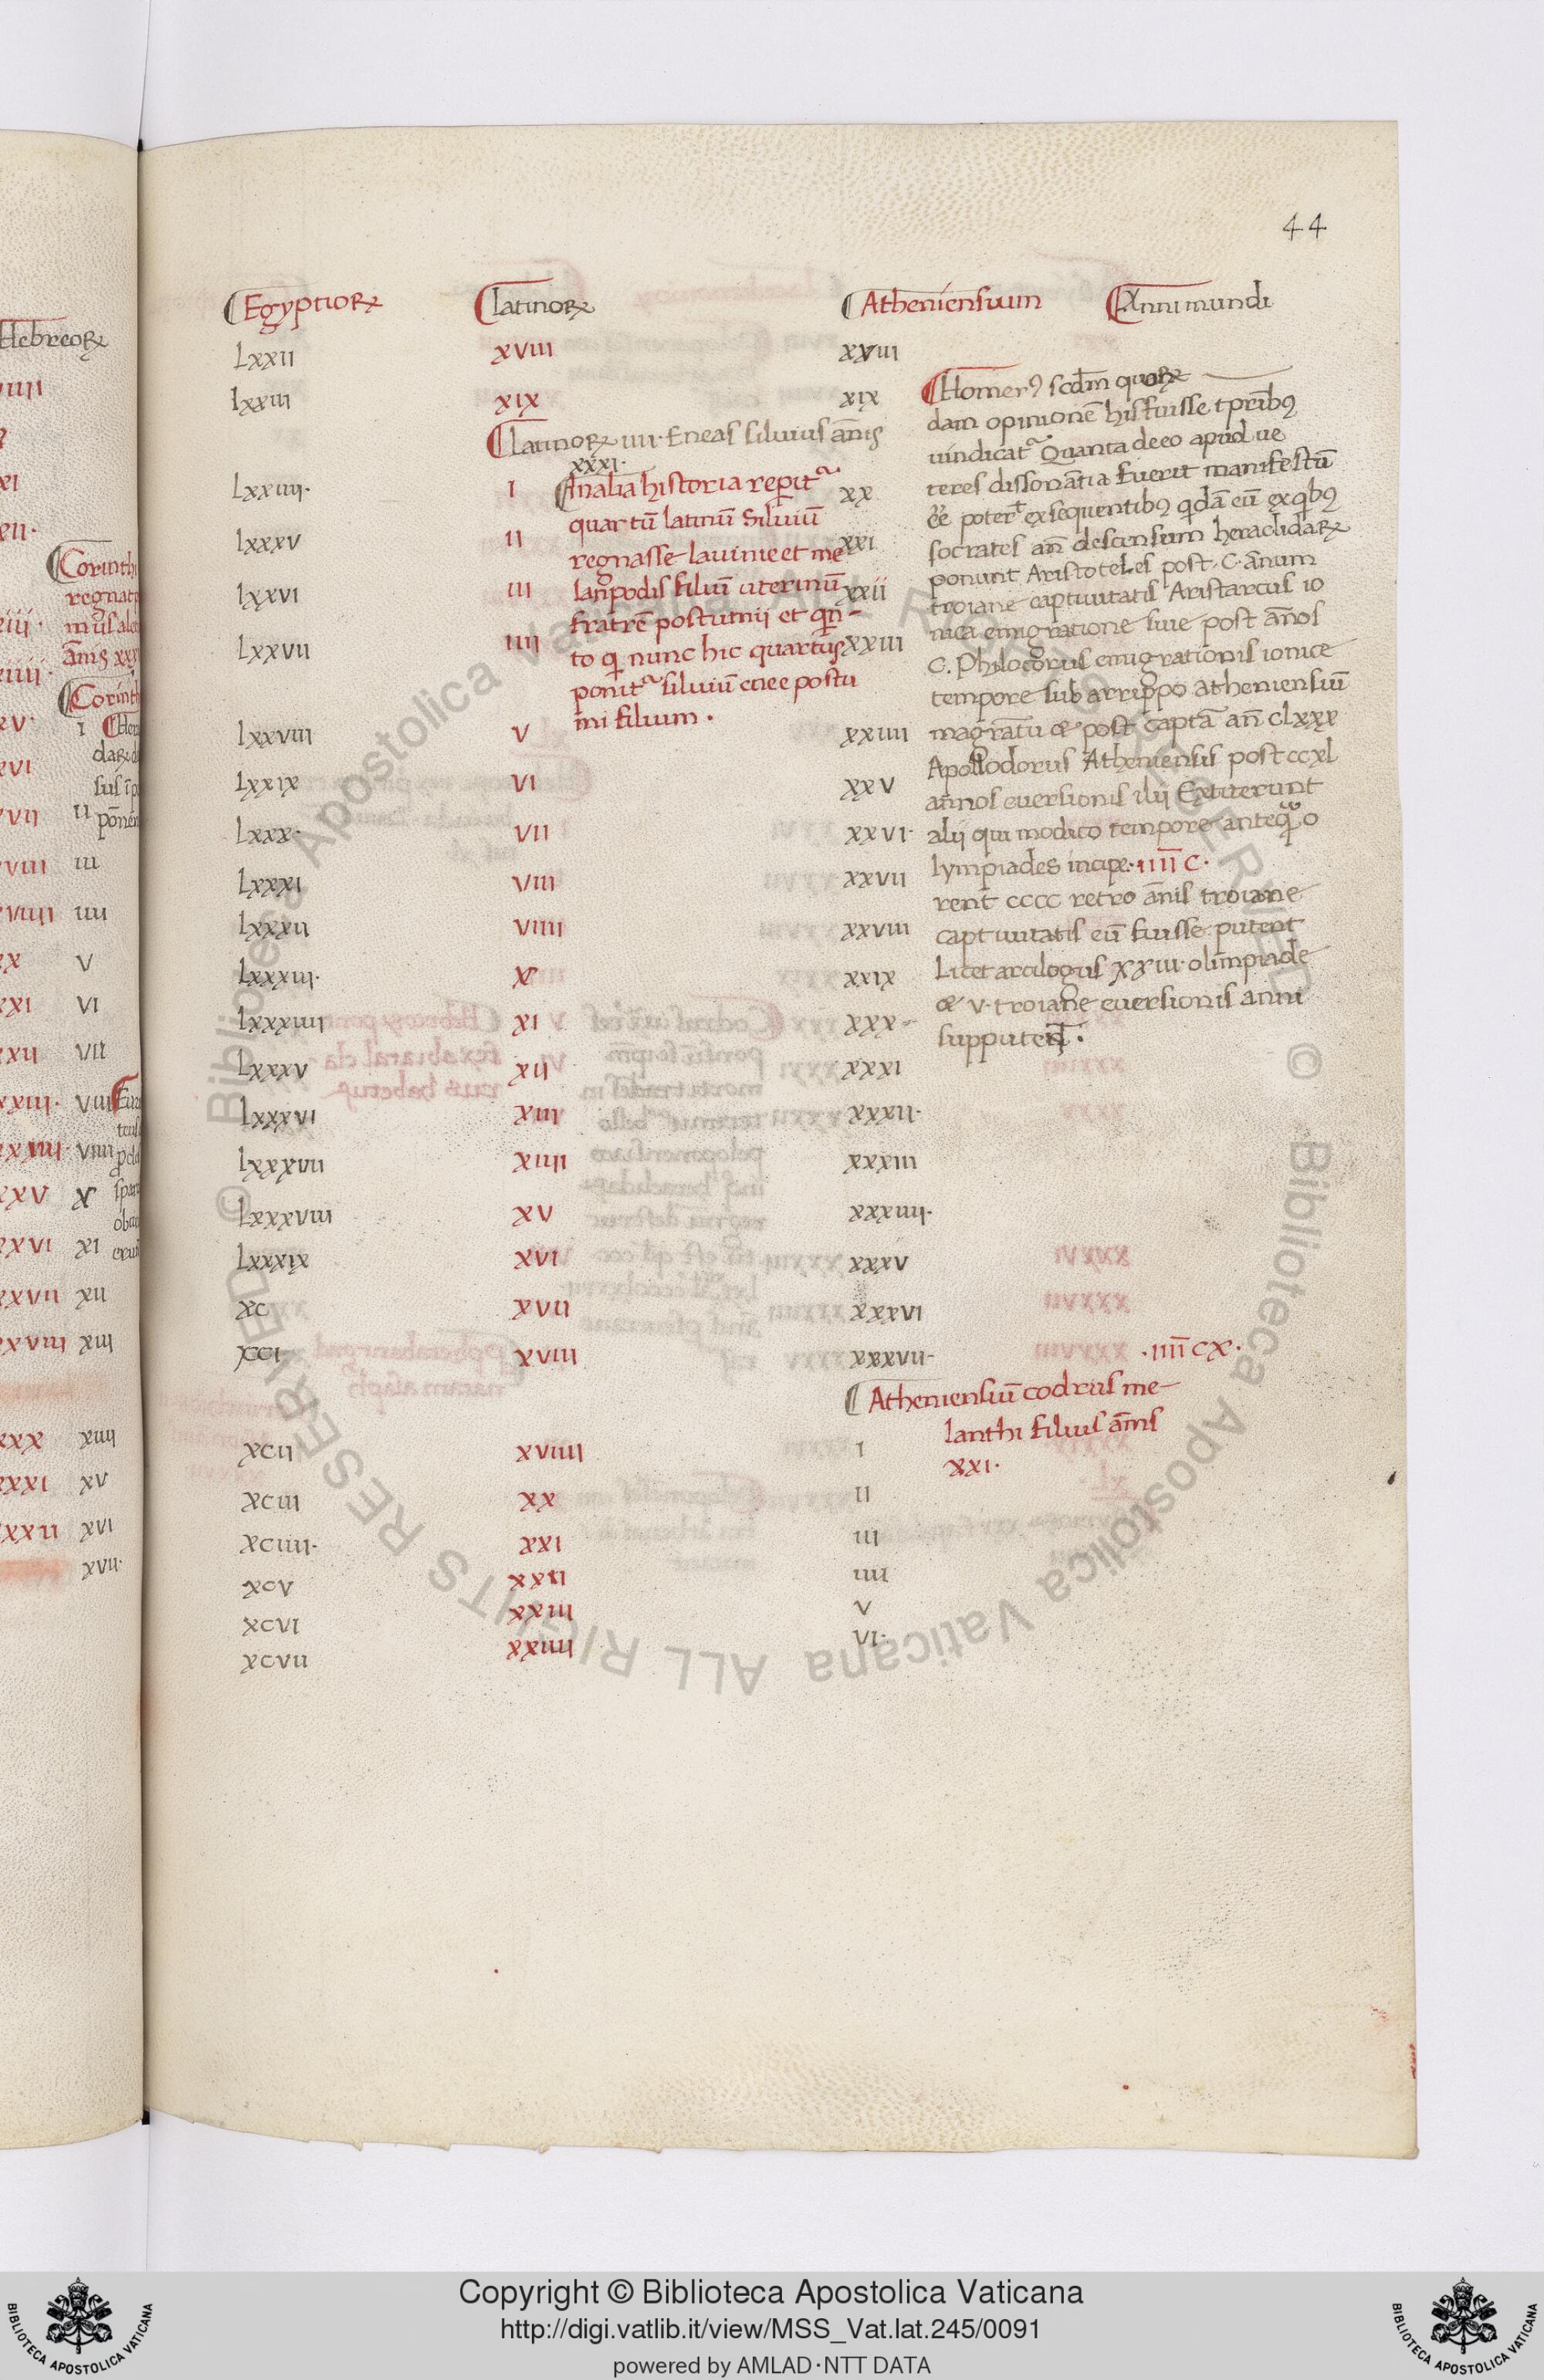 44
Hebreoꝝ
Egyptioꝝ latinoꝝ Atheniensium Anni mundi
lxxii xviii xxviii
lxxiii xix xix
latinoꝝ iiii. Eneas siluius ānis
xxxi.
lxxiiii. i xx
lxxxv ii xxi
lxxvi iii xxii
lxxvii iiii xxiii
In alia historia reperit᷒
quartū latinū Siluiū
regnasse lauinie et me
lanpodis filiū uterinū
fratrē postumii et
to nunc hic quartus
ponit᷒ siluiū enee postu
mi filium.
Homerꝰ scdm quoꝝ
dam opinionē his fuisse tpribꝰ
uindicat᷒ Quanta de eo apud ue
teres dissonātia fuerit manifestū
ēe potert exsequentibꝰ qdā eū ex qbꝰ
socrates añ descensum heraclidaꝝ
ponunt Aristoteles post. C. ānum
troiane captiuitatis Aristarcus io
nica emigratione siue post ānos
C. Philocorus emigrationis ionice
tempore sub arrippo atheniensiū
magratu & post captā añ clxxx
Apollodorus Atheniensis post ccxl
annos euersionis ilii Extiterunt
alii qui modico tempore anteq̄ o
lympiades incipe. īīīī c.
rent cccc retro ānis troiane
captiuitatis eū fuisse putent
Licet arcilogus xxiii. olimpiade
& v. troiane euersionis anni
supputent.
lxxviii v xxiiii
lxxix vi xxv
lxxx. vii xxvi.
lxxxi viii xxvii
lxxxii viiii xxviii
lxxxiii. x xxix
lxxxiiii xi xxx
lxxxv xii xxxi
lxxxvi xiii xxxii.
lxxxvii xiiii xxxiii
lxxxviii xv xxxiiii.
lxxxix xvi xxxv
xc xvii xxxvi
xcci xviii xxxvii. . īīīī cx.
Atheniensiū codrus me
lanthi filius ānis
xxi.
xcii xviiii i
xciii xx ii
xciiii. xxi iii
xcv xxii iiii
xcvi xxiii v
xcvii xxiiii vi.
© Biblioteca Apostolica Vaticana ALL RIGHTS RESERVED © Biblioteca Apostolica Vaticana ALL RIGHTS RESERVED
Copyright © Biblioteca Apostolica Vaticana
http://digi.vatlib.it/view/MSS_Vat.lat.245/0091
powered by AMLAD·NTT DATA
BIBLIOTECA APOSTOLICA VATICANA
BIBLIOTECA APOSTOLICA VATICANA